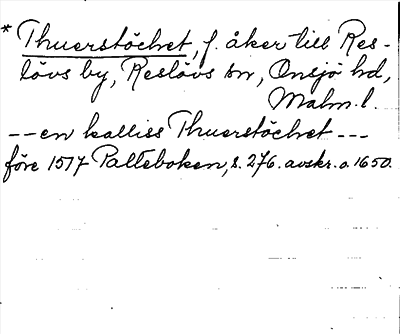 * Thuerstöchet, f. åker till Res-
lövs by, Reslövs sn, Onsjö hd,
Malm. l.
-- en kalliss Thuerstöchet ---
före 1517 Palteboken, s. 276. avskr. o. 1650.